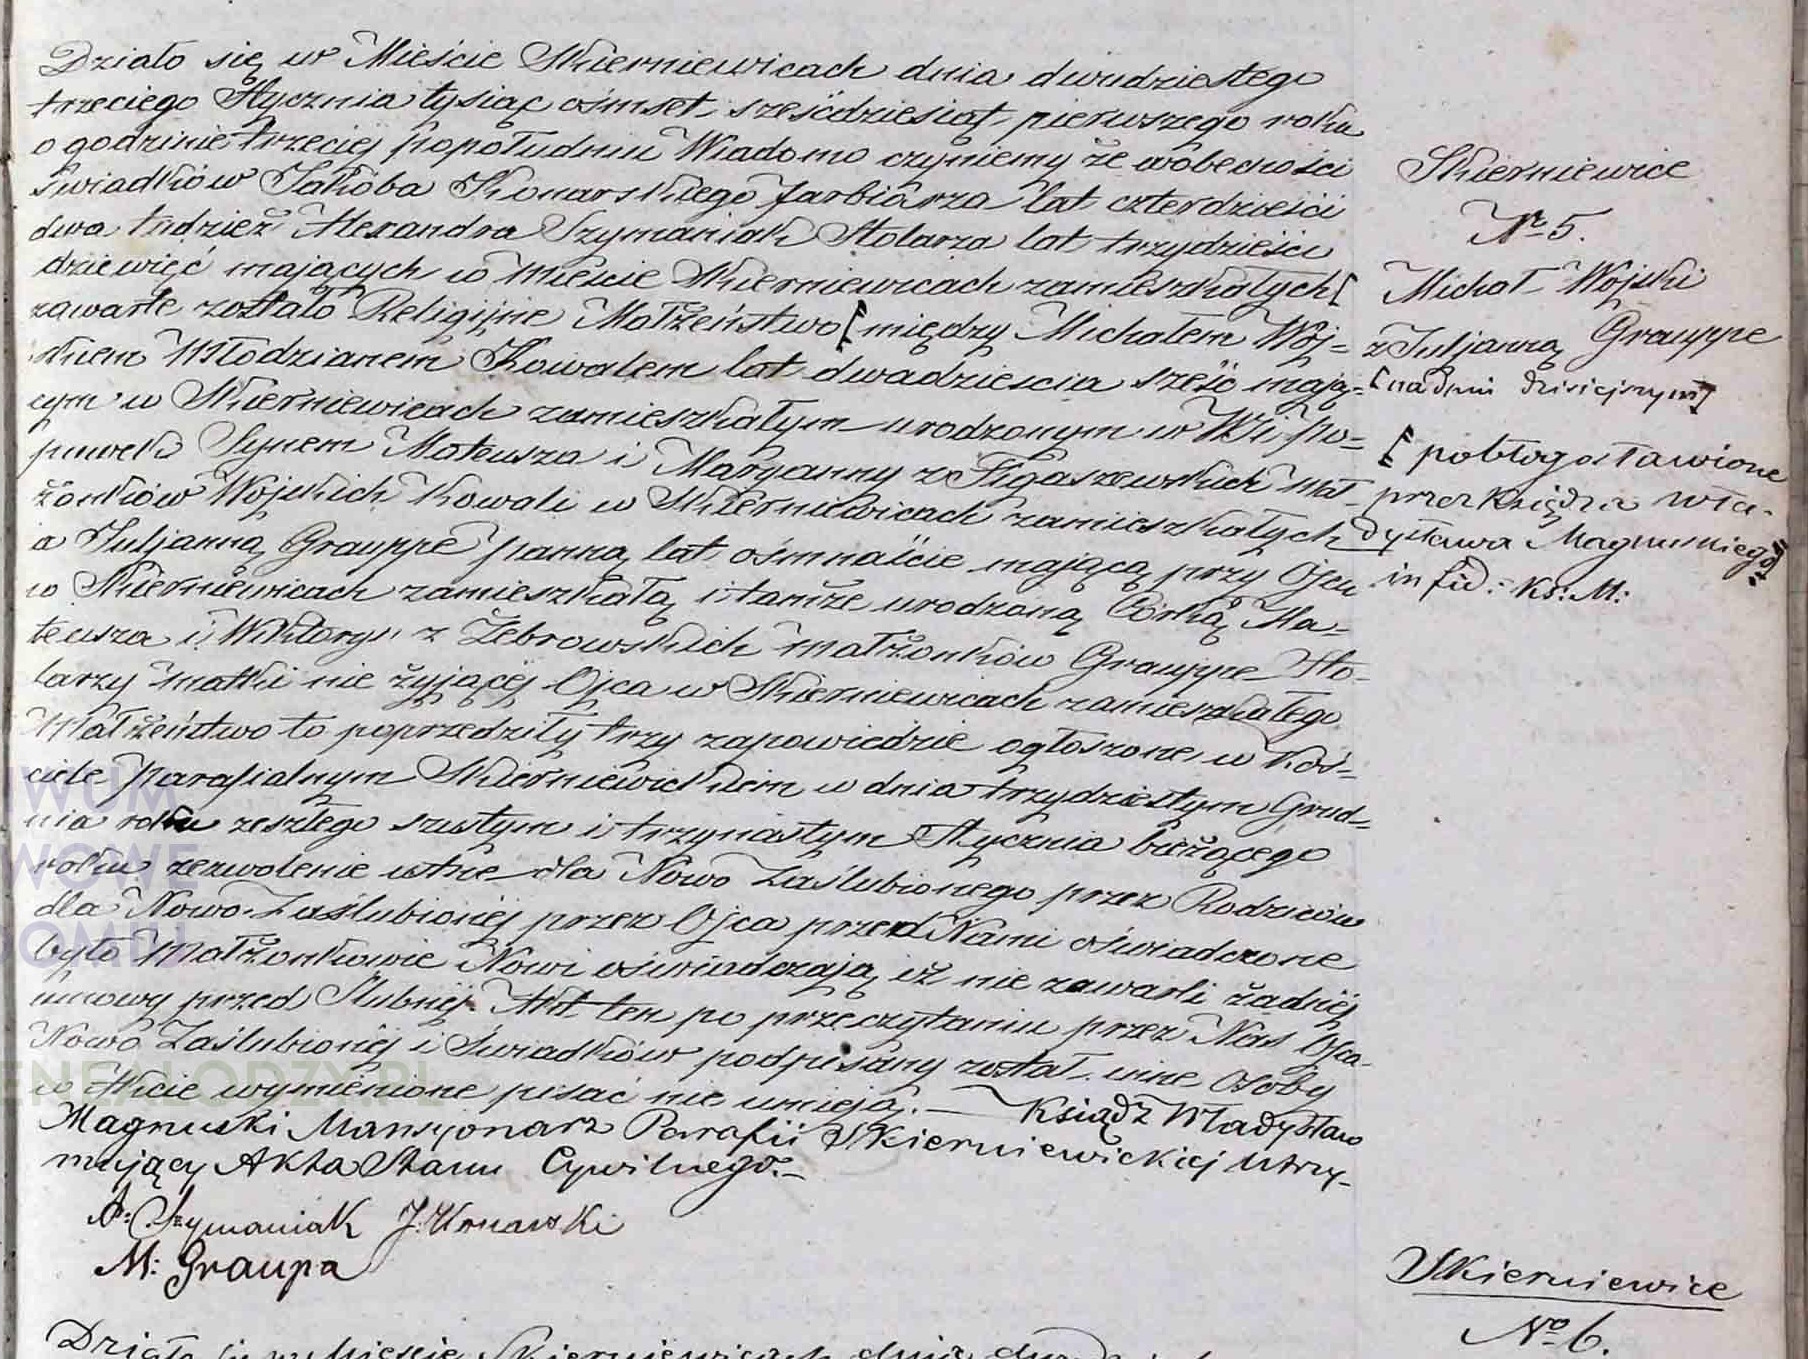 Działo się w Mieście Skierniewicach dnia dwudziestego
trzeciego Stycznia tysiąc ośmset sześćdziesiąt pierwszego roku
o godzinie trzeciej popołudniu Wiadomo czyniemy że wobecności
Świadków Jakóba Konarskiego farbiarza lat czterdzieści
dwa tudzież Alexandra Szymaniak Stolarza lat trzydzieści
dziewięć mających w Mieście Skierniewicach zamieszkałych [
zawarte zostało Religijne Małżeństwo [ między Michałem Woj=
skiem Młodzianem Kowalem lat dwadzieścia sześć mają=
cym w Skierniewicach zamieszkałym urodzonym w Wsi
Synem Mateusza i Maryanny z Figaszewskich Mał-
żonków Wojskich Kowali w Skierniewicach zamieszkałych
a Juljanną Grauppe panną lat ośmnaście mającą przy Ojcu
w Skierniewicach zamieszkałą i tamże urodzoną Córką Ma=
teusza i Wiktoryi z Żebrowskich Małżonków Grauppe Sto-
larzy matki nie żyjącej Ojca w Skierniewicach zamieszkałego
Małżeństwo to poprzedziły trzy zapowiedzie ogłoszone w Koś-
ciele Parafialnym Skierniewickiem w dnia trzydziestym Grud=
nia roku zeszłego szóstym i trzynastym Stycznia bieżącego
roku zezwolenie ustne dla Nowo Zaślubionego przez Rodziców
dla Nowo-Zaślubionéj przez Ojca przed Nami oświadczone
było Małżonkowie Nowi oświadczają iż nie zawarli żadnéj
umowy przed Ślubnéj. Akt ten po przeczytaniu przez Nas Ojca
Nowo Zaślubionéj i Świadków podpisany został. inne Osoby
w Akcie wymienione pisać nie umieją.— Ksiądz Władysław
Magnuski Mansyonarz Parafii Skierniewickiej Utrzy-
mujący Akta Stanu Cywilnego.—
A: Szymaniak J. Konarski
M: Graupa
Działo się w Mieście Skierniewicach dnia
Skierniewice
No 5.
Michał Wojski
z Juljanną Grauppe
[na dniu dzisiejszym]
[ pobłogosławione
przez Księdza Wła-
dysława Magnuskiego]
in fid: Ks: M:
Skierniewice
No 6.
IWUM
WOWE
DOMU
ENEALODZY.PL